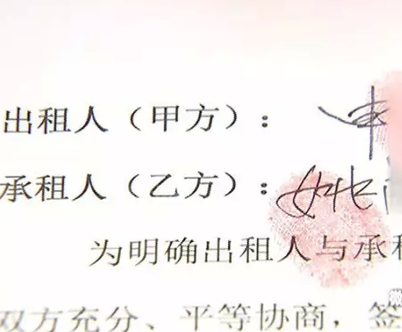 出租人（甲方）：
承租人（乙方）：
为明确出租人与承租
双方充分、平等协商，签